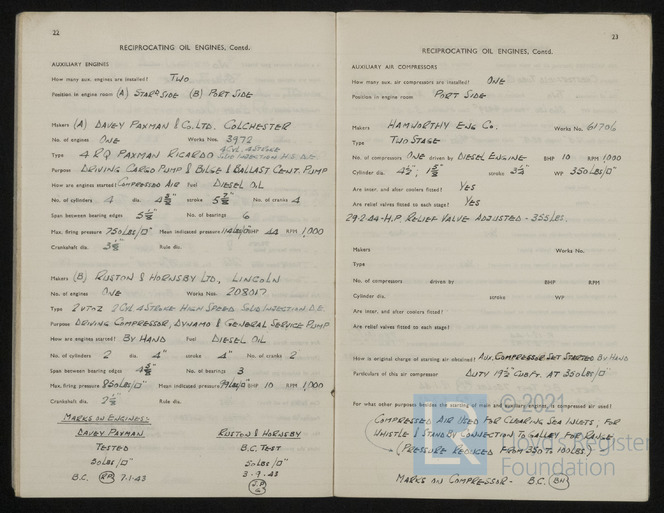 22
RECIPROCATING OIL ENGINES, Contd.
AUXILIARY ENGINES
How many aux. engines are installed? TWO
Position in engine room (A) STARBD SIDE (B) PORT SIDE
Makers (A) DAVEY PAXMAN & CO. LTD. COLCHESTER
No. of engines ONE Works Nos. 3972
Type 4 RQ PAXMAN RICARDO 4 CYL. 4 STROKE
Purpose DRIVING CARGO PUMP & BILGE & BALLAST CENT. PUMP
How are engines started? COMPRESSED AIR Fuel DIESEL OIL
No. of cylinders 4 dia. stroke No. of cranks 4
Span between bearing edges No. of bearings 6
Max. firing pressure 750 LBS/□" Mean indicated pressure 114 LBS/□" BHP 44 RPM 1,000
Crankshaft dia. Rule dia.
Makers (B) RUSTON & HORNSBY LTD, LINCOLN
No. of engines ONE Works Nos. 208017
Type 2 VTOZ 2 CYL. 4 STROKE HIGH SPEED SOLID INJECTION D.E.
Purpose DRIVING COMPRESSOR, DYNAMO & GENERAL SERVICE PUMP
How are engines started? BY HAND Fuel DIESEL OIL
No. of cylinders 2 dia. 4" stroke 4" No. of cranks 2
Span between bearing edges No. of bearings 3
Max. firing pressure 850 LBS/□" Mean indicated pressure BHP 10 RPM 1,000
Crankshaft dia. Rule dia.
MARKS ON ENGINES:-
DAVEY PAXMAN RUSTON & HORNSBY
TESTED B.C. TEST
50 LBS/□"
3-9-43
B.C. 7-1-43
23
RECIPROCATING OIL ENGINES, Contd.
AUXILIARY AIR COMPRESSORS
How many aux. air compressors are installed? ONE
Position in engine room PORT SIDE
Makers HAMWORTHY ENG CO. Works No. 61706
Type TWO STAGE
No. of compressors ONE driven by DIESEL ENGINE BHP 10 RPM 1000
Cylinder dia. stroke WP 350 LBS/□"
Are inter. and after coolers fitted? YES
Are relief valves fitted to each stage? YES
29-2-44 - H.P. RELIEF VALVE ADJUSTED - 355 LBS.
Makers Works No.
Type
No. of compressors driven by BHP RPM
Cylinder dia. stroke WP
Are inter. and after coolers fitted?
Are relief valves fitted to each stage?
How is original charge of starting air obtained? AUX. COMPRESSOR SET STARTED BY HAND
Particulars of this air compressor DUTY 19½ CUB FT. AT 350 LBS/□"
For what other purposes besides the starting of main and auxiliary engines, is compressed air used?
COMPRESSED AIR USED FOR CLEARING SEA INLETS, FOR
WHISTLE & STANDBY CONNECTION TO GALLEY FOR RANGE
(PRESSURE REDUCED FROM 350 TO 100 LBS)
MARKS ON COMPRESSOR - B.C.
© 2021
LR
Lloyd's Register
Foundation